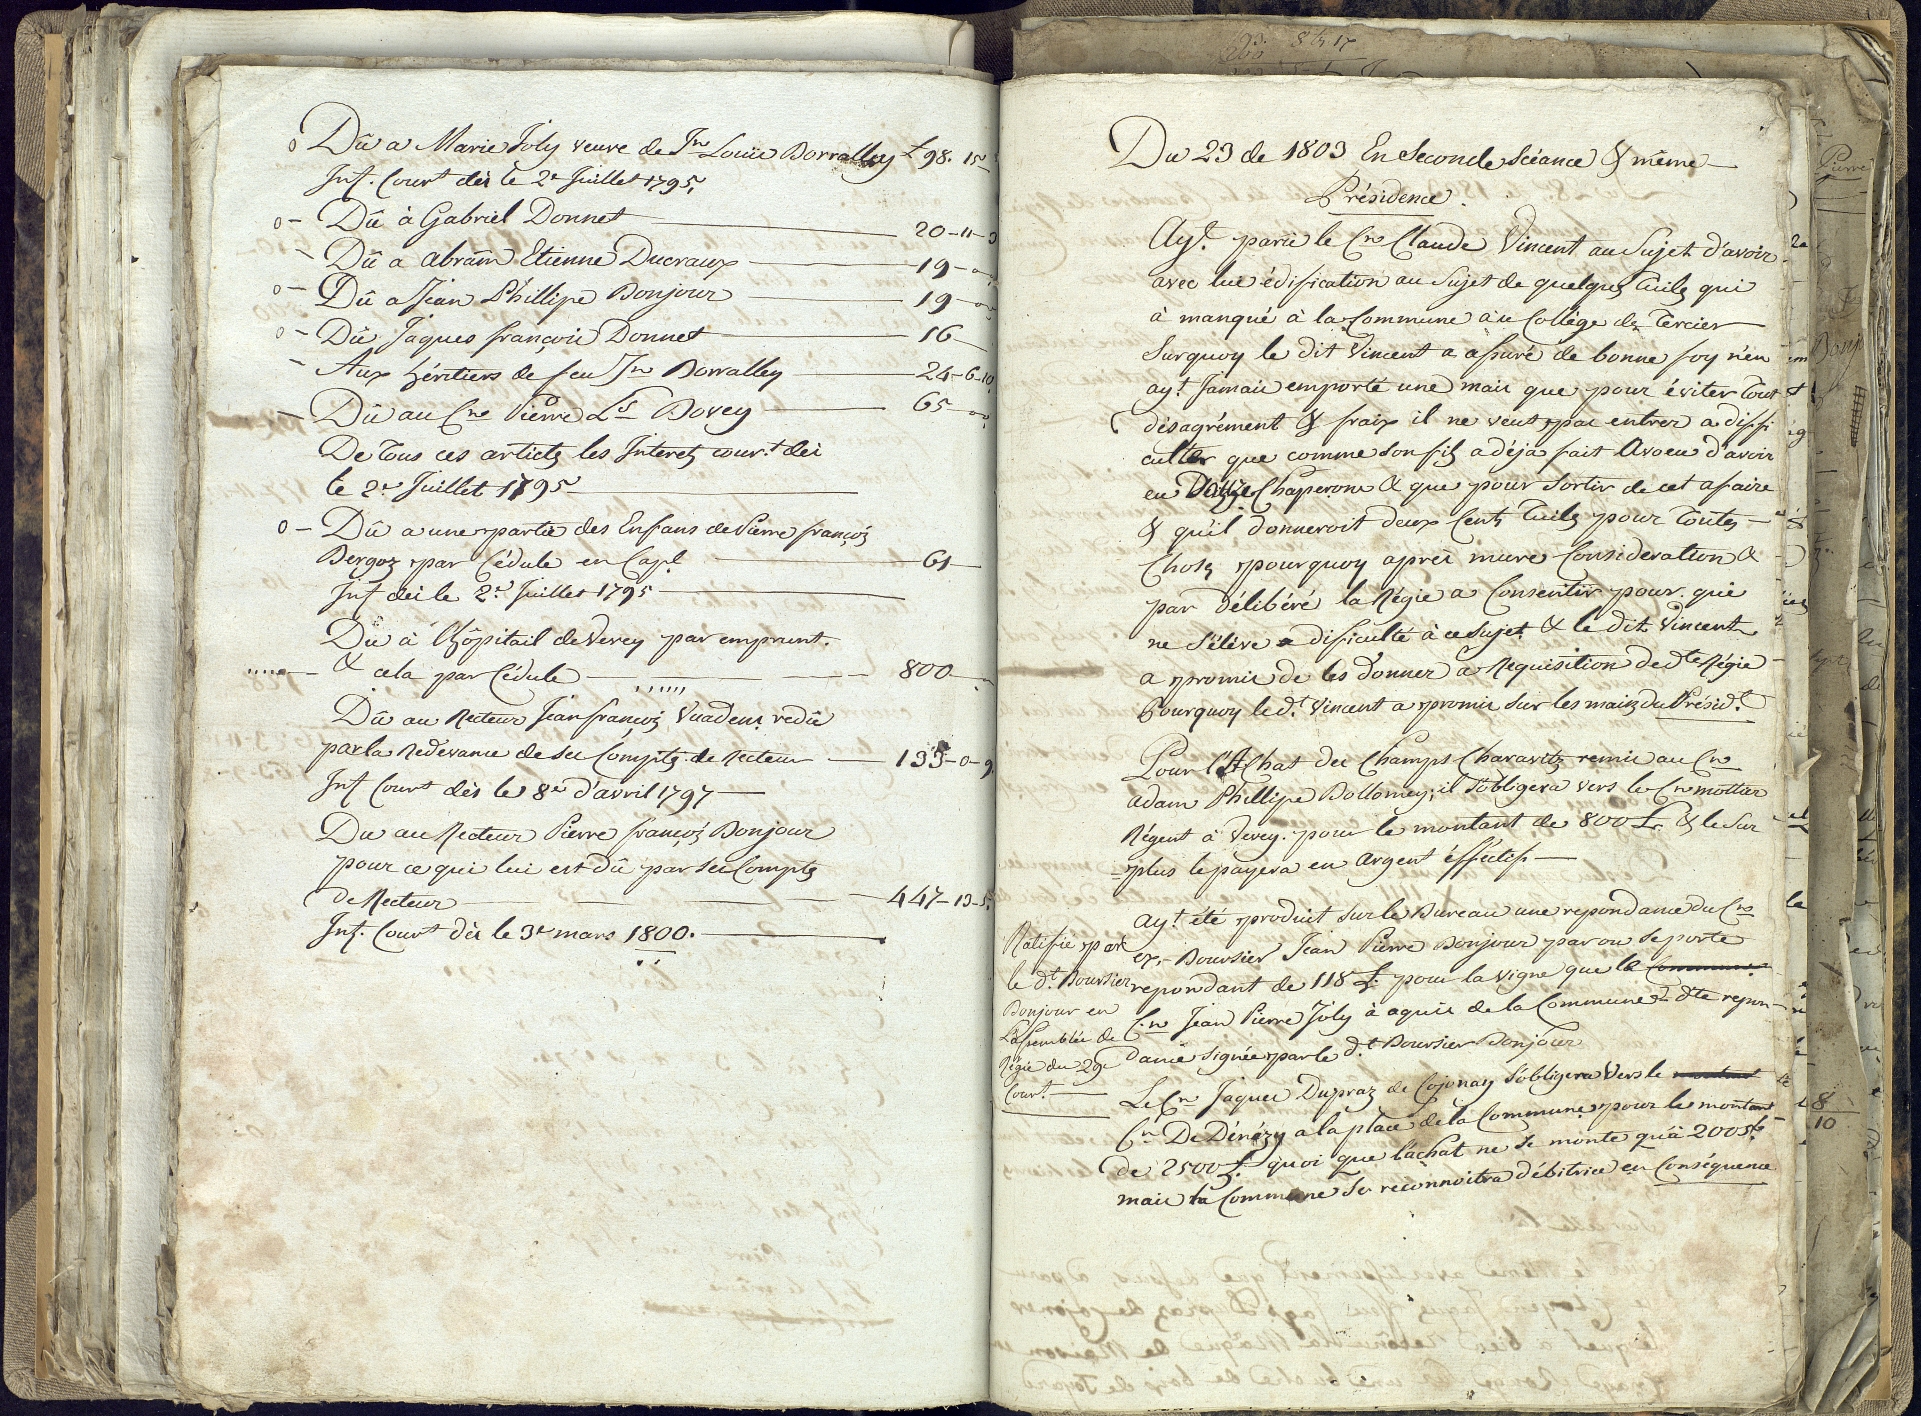 o Dû a Marie Joly veuve de Jn Louis Borralley £ 98. 15
Int. Court dès le 2e Juillet 1795.
o - Dû à Gabriel Donnet 20-11-3
- Dû a abram Etienne Ducraux 19-
o - Dû a Jean Phillipe Bonjour 19-
o - Dû Jaques françois Donnet 16
- Aux héritiers de feu Jn Borralley 24-6-10
- Dû au Cne Pierre Ls Bovey 65
De Tous ces articles les Interets cour.t dès
le 2e Juillet 1795
o - Dû a une partie des Enfans de Pierre françois
Bergoz par Cédule en Capl. 61
Int dès le 2e Juillet 1795
Du à l'hôpitail de Vevey par emprunt.
& cela par Cédule 800
Dû au Recteur Jean françois Vuadens redû
par la Redevance de ses Compte de Recteur 133-0-9
Int Court dès le 8e d'avril 1797
Du au Recteur Pierre françois Bonjour
pour ce qui lui est dû par ses Compte
de Recteur 447-13-5.
Int. Court dès le 3e mars 1800.
Du 23 de 1803 En Seconde Séance & même
Présidence.
Ayt. parü le Cne Claude Vincent au Sujet d'avoir
avec lui édification au Sujet de quelques Tuiles qui
à manqué à la Commune au Collège des Tercier
Surquoy le dit Vincent a assuré de bonne foy n'en
ayt. Jamais emporté une mais que pour éviter Tout
désagrément & fraix il ne veut pas entrer a diffi
culter que comme son fils a déjà fait Avoeu d'avoir
eu Chaperons & que pour Sortir de cet afaire
& qu'il donneroit deux Cents Tuiles pour Toutes
Choses pourquoy après mure Considération &
par délibéré la Régie a Consentir pour que
ne S'élève dificulté à ce sujet & le dit Vincent
a promis de les donner à Requisition de dte Régie
Pourquoy le d.t Vincent a promis sur les mains du Présid.t
Pour l'Achat des Champs Charavitz remis au Cne
adam Phillipe Dollomey; il S'obligera vers le Cne mottier
Régent à Vevey. pour le montant de 800 £. & le Sur
=plus le payera en Argent éffectif
Ayt été produit sur le Bureau une repondance du Cne
ex-Boursier Jean Pierre Bonjour par ou Se porte
repondant de 118 £. pour la vigne que le Commune
Cne Jean Pierre Joly à aquis de la Commune dte repon
dance signée par le d.t Boursier Bonjour
Ratifié par
le d.t Boursier
Bonjour en
L'assemblée de
Régie du 29e
Cour.t
Le Cne Jaques Dupraz de Cojonay S'obligera Vers le montant
Cne De Dénézy a la place de la Commune pour le montant
de 2500 £. quoi que l'achat ne se monte qu'à 2005
mais la Commune se reconnoitra débitrice en Conséquence